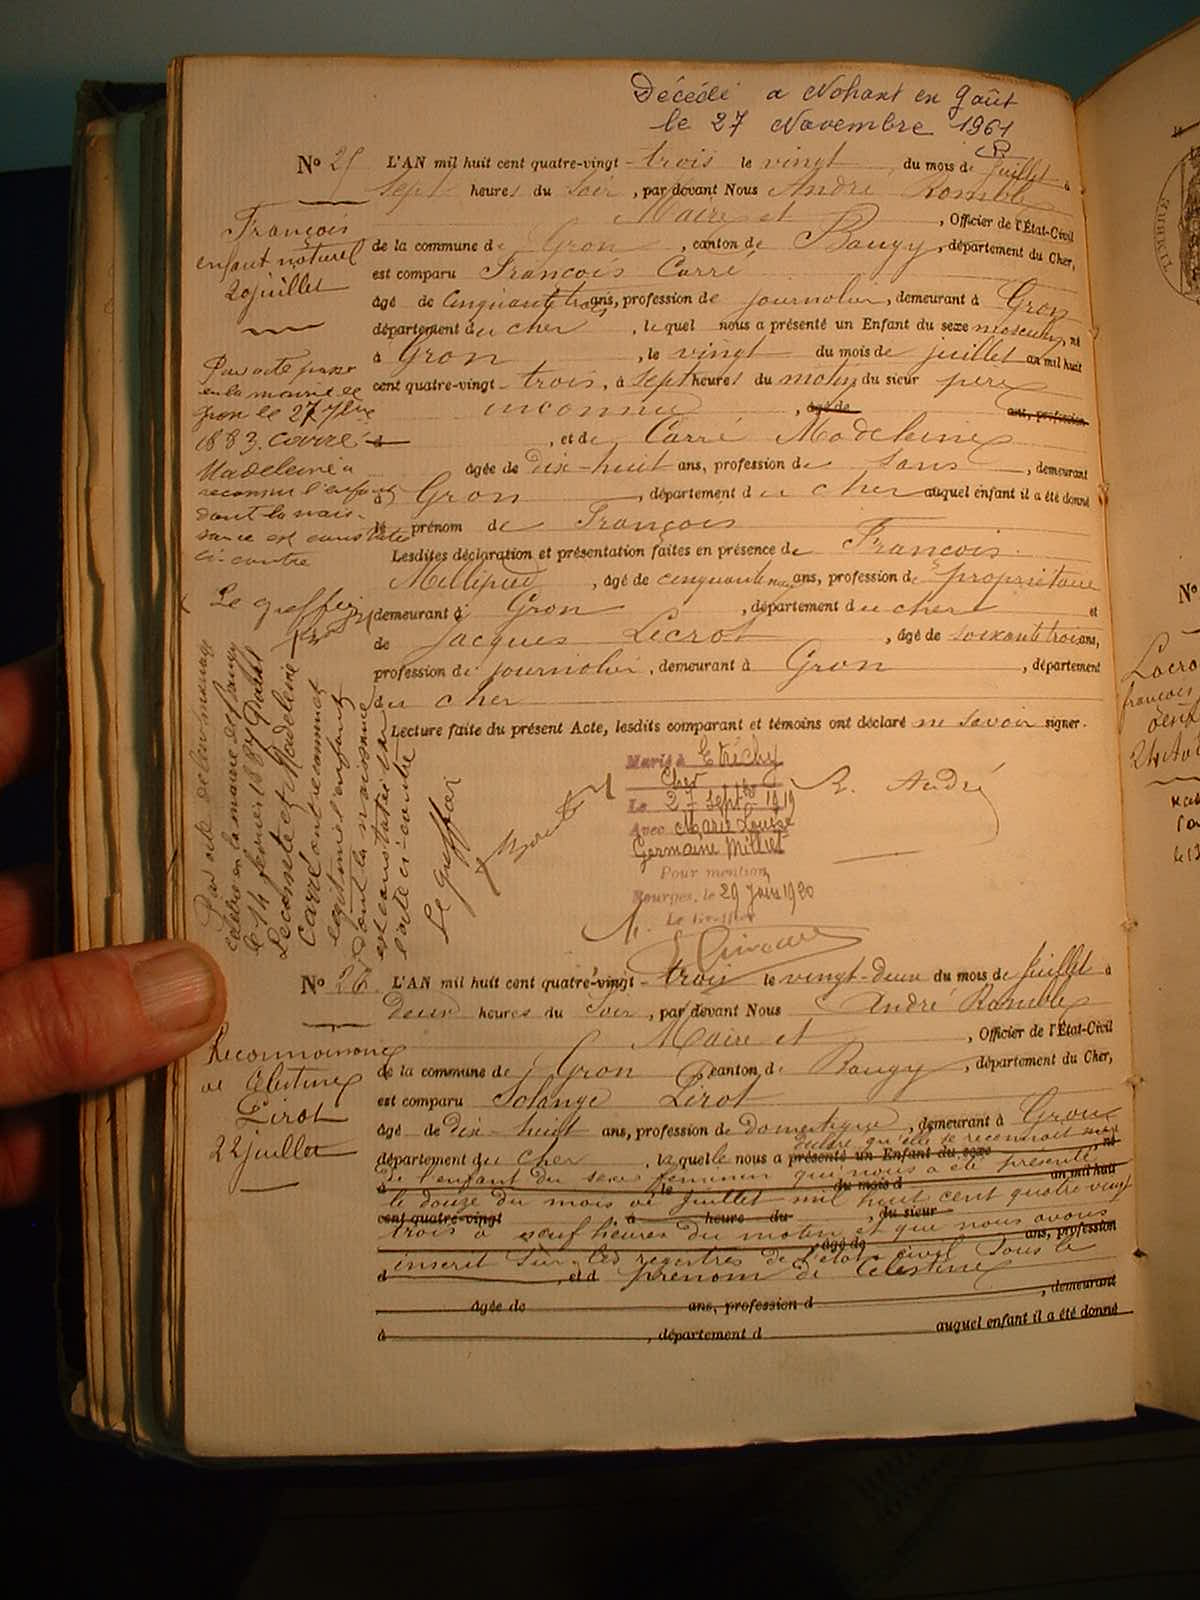 Décédé a Nohant en Goût
le 27 Novembre 1961
N° 25 L'AN mil huit cent quatre-vingt-trois le vingt du mois de juillet à
sept heures du soir, par devant Nous André Romble
Maire et, Officier de l'État-Civil
de la commune de Gron, canton de Baugy, département du Cher,
est comparu François Carré
âgé de cinquante trois ans, profession de journalier, demeurant à Gron
département du cher, lequel nous a présenté un Enfant du sexe masculin, né
à Gron, le vingt du mois de juillet an mil huit
cent quatre-vingt-trois, à sept heures du matin du sieur père
inconnu, âgé de ans, profession
d, et de Carré Madeleine
âgée de dix-huit ans, profession de sans, demeurant
à Gron, département du cher auquel enfant il a été donné
le prénom de François
Lesdites déclaration et présentation faites en présence de François
Millepied, âgé de cinquante ans, profession de propriétaire
demeurant à Gron, département du cher et
de Jacques Lecrot, âgé de soixante trois ans,
profession de journalier, demeurant à Gron, département
du cher
Lecture faite du présent Acte, lesdits comparant et témoins ont déclaré ne savoir signer.
R. André
François
enfant naturel
20 juillet
Par acte passé
en la mairie de
Gron le 27 7bre
1883. Carré
Madeleine a
reconnu l'enfant
dont la nais-
sance est constatée
ci-contre
Le greffier
Par acte de leur mariage
célébré en la mairie de
le 14 février 1889
Lecomte et Madeleine
Carré ont reconnu et
légitimé l'enfant
dont la naissance
est constatée par
l'acte ci-contre
Le Greffier
Marié à Etréchy
Cher
Le 27 Septbre 1919
Avec Marie Louise
Germaine Milliet
Pour mention
Bourges, le 29 Juin 1920
Le Greffier
N° 26. L'AN mil huit cent quatre-vingt-trois le vingt-deux du mois de juillet à
deux heures du soir, par devant Nous André Romble
Maire et, Officier de l'État-Civil
de la commune de Gron canton de Baugy, département du Cher,
est comparu Solange Pirot
âgé de dix-huit ans, profession de domestique, demeurant à Gron
déclare qu'elle se reconnait mère
département du cher, laquelle nous a présenté un Enfant du sexe, né
de l'enfant du sexe féminin qui nous a été présenté
à le du mois d an mil huit
le douze du mois de juillet mil huit cent quatre vingt
cent quatre-vingt à heure du du sieur
trois à neuf heures du matin et que nous avons
âgé de ans, profession
inscrit sur les registres de l'état civil sous le
d, et d prénom de Célestine
âgée de ans, profession d, demeurant
à, département d auquel enfant il a été donné
Reconnaissance
de Célestine
Pirot
22 juillet
TIMBRE
N°
Lacro
françois
24 Aoû